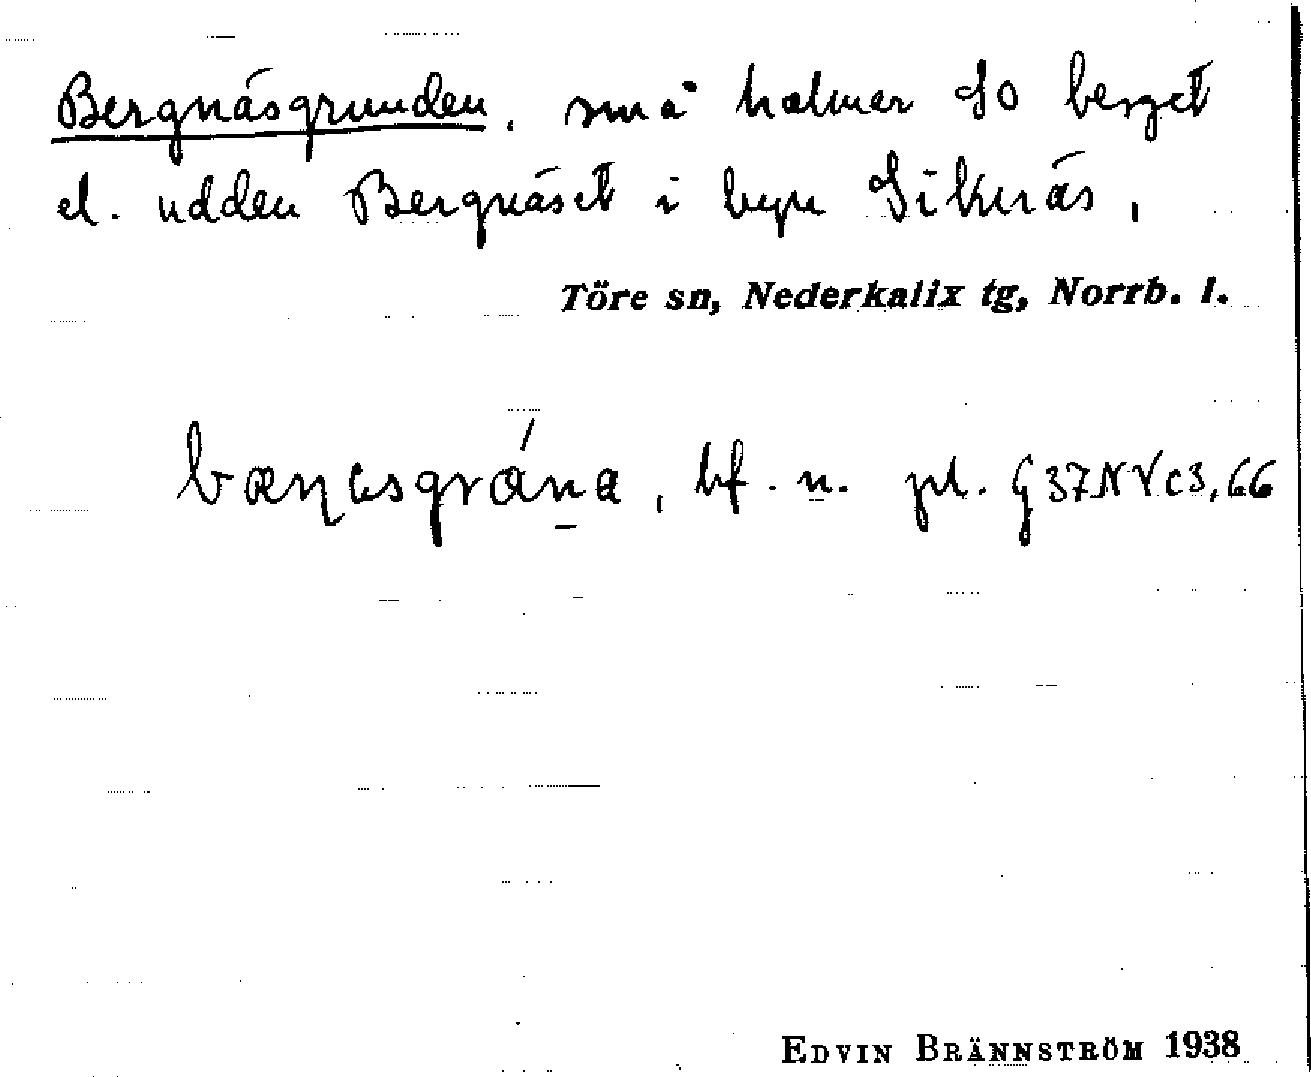 Bergnäsgrunden, små holmar SO berget
el. udden Bergnäset i byn Siknäs,
Töre sn, Nederkalix tg, Norrb. l.
bf. n. pl. G37NVc3,66
EDVIN BRÄNNSTRÖM 1938